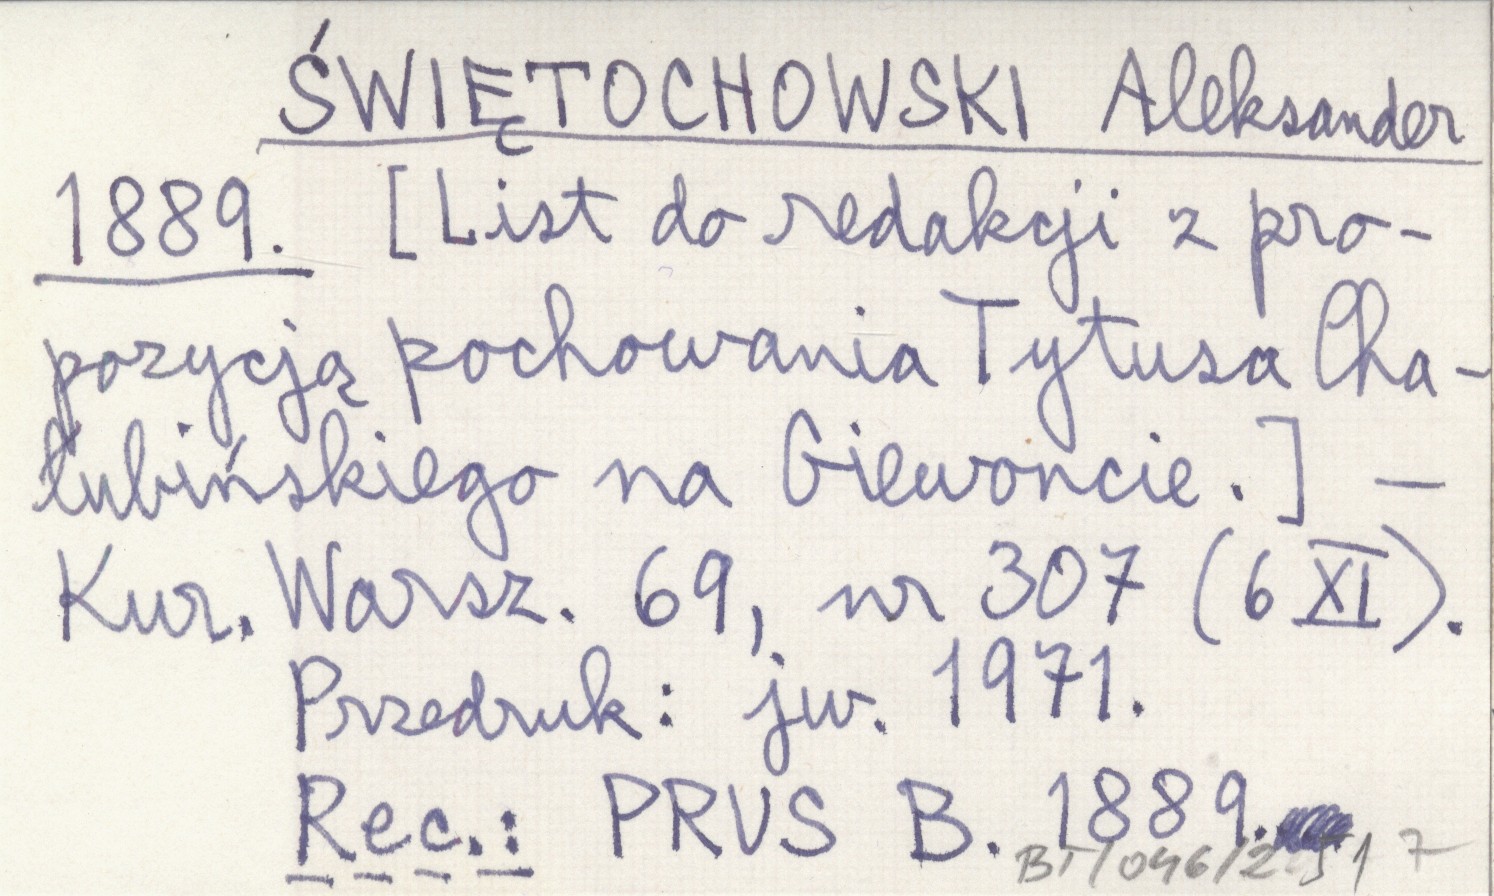 ŚWIĘTOCHOWSKI Aleksander
1889. [List do redakcji z pro-
pozycją pochowania Tytusa Cha-
łubińskiego na Giewoncie.] –
Kur. Warsz. 69, nr 307 (6 XI).
Przedruk: jw. 1971.
Rec.: PRUS B. 1889.